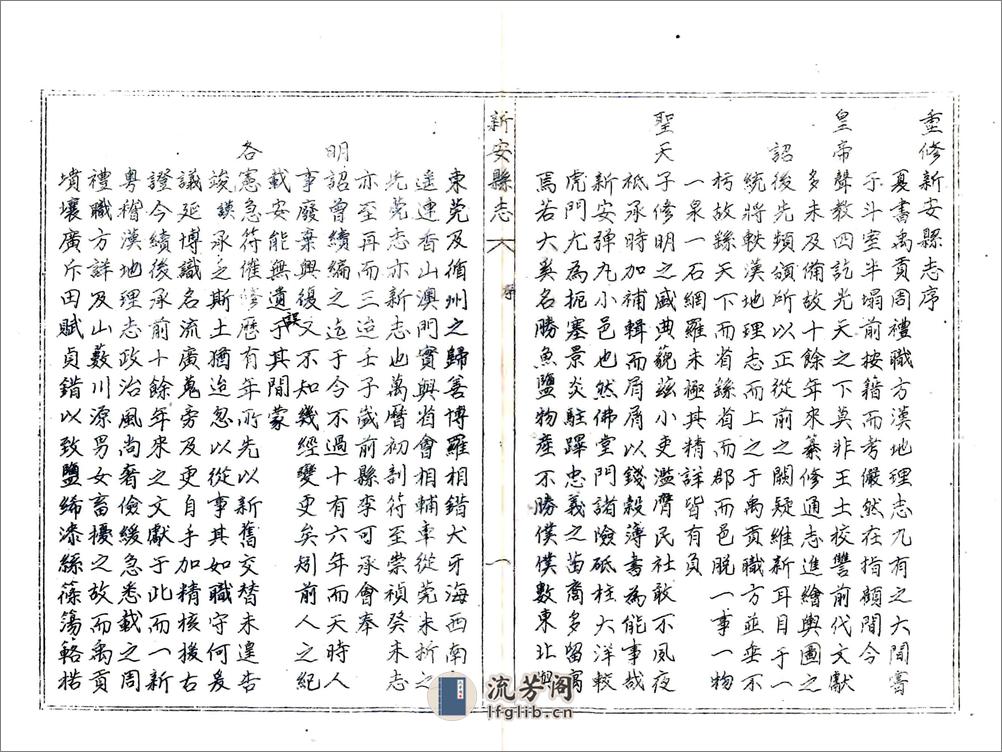 重修新安縣志序
夏書禹貢周禮職方漢地理志九有之大閒嘗
于斗室半塌前按籍而考儼然在指顧間今
皇帝聲教四訖光天之下莫非王土校讐前代文獻
多未及備故十餘年來纂修通志進繪輿圖之
詔後先頻頒所以正從前之闕疑維新耳目于一
統將軼漢地理志而上之于禹貢職方並垂不
朽故繇天下而省繇省而郡而邑脫一事一物
一泉一石網羅未極其精詳皆有負
聖天子修明之盛典藐玆小吏濫膺民社敢不夙夜
祇承時加補輯而屑屑以錢穀薄書為能事哉
新安彈丸小邑也然佛堂門諸險砥柱大洋較
虎門尤為扼塞景炎駐蹕忠義之苗裔多留寓
焉若大奚名勝魚鹽物產不勝僕僕數東北
新安縣志
序
一
東莞及循州之歸善博羅相錯犬牙海西南
遥連香山澳門實與省會相輔車從莞未析之
先莞志亦新志也萬曆初剖符至崇禎癸未志
亦至再而三迨壬子歲前縣李可承會奉
明詔曾續編之迄于今不過十有六年而天時人
事廢棄興復又不知幾經變更矣矧前人之紀
載安能無遺誤于其間蒙
各憲急符催修歷有年所先以新舊交替未遑告
竣鍈承之斯土猶迨忽以從事其如職守何爰
議延博識名流廣蒐旁及更自手加精核援古
證今續後承前十餘年來之文獻于此而一新
粤稽漢地理志政治風尚奢儉緩急悉載之周
禮職方詳及山藪川源男女畜擾之故而禹貢
墳壤廣斥田賦貞錯以致鹽絺漆絲篠簜簵楛
流芳阁
lfglib.cn